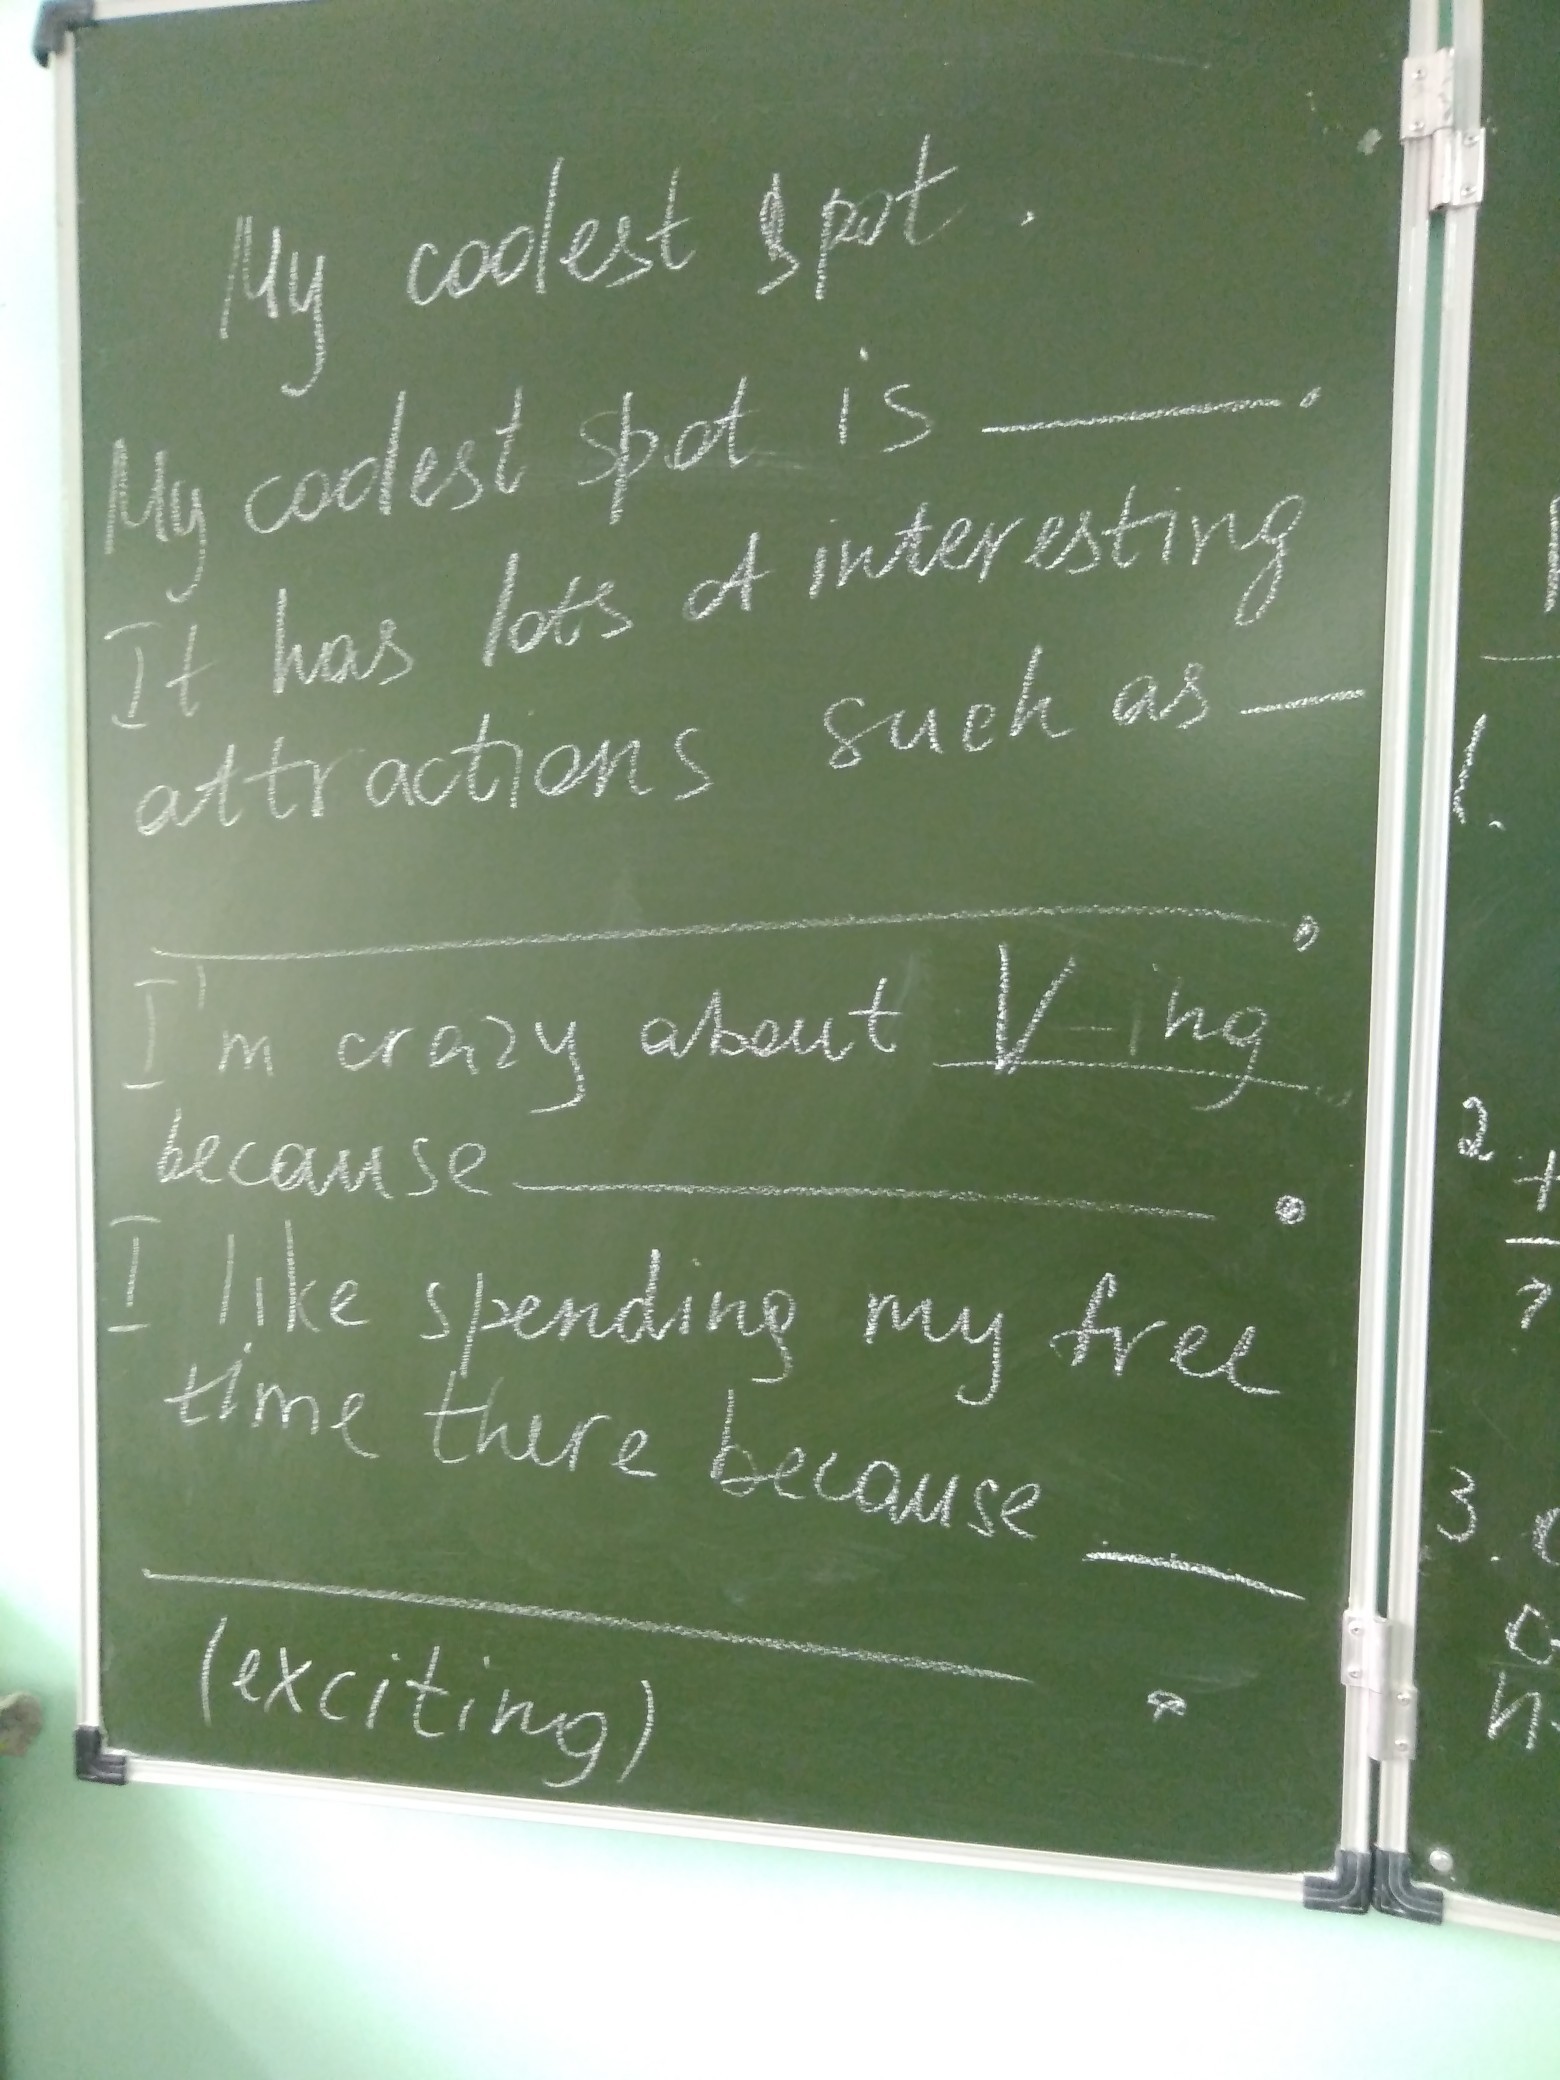 My coolest spot.
My coolest spot is ______.
It has lots of interesting
attractions such as ___
______________.
I'm crazy about V-ing
because ______________.
I like spending my free
time there because ____
______________.
(exciting)
1.
2 +
?
3.